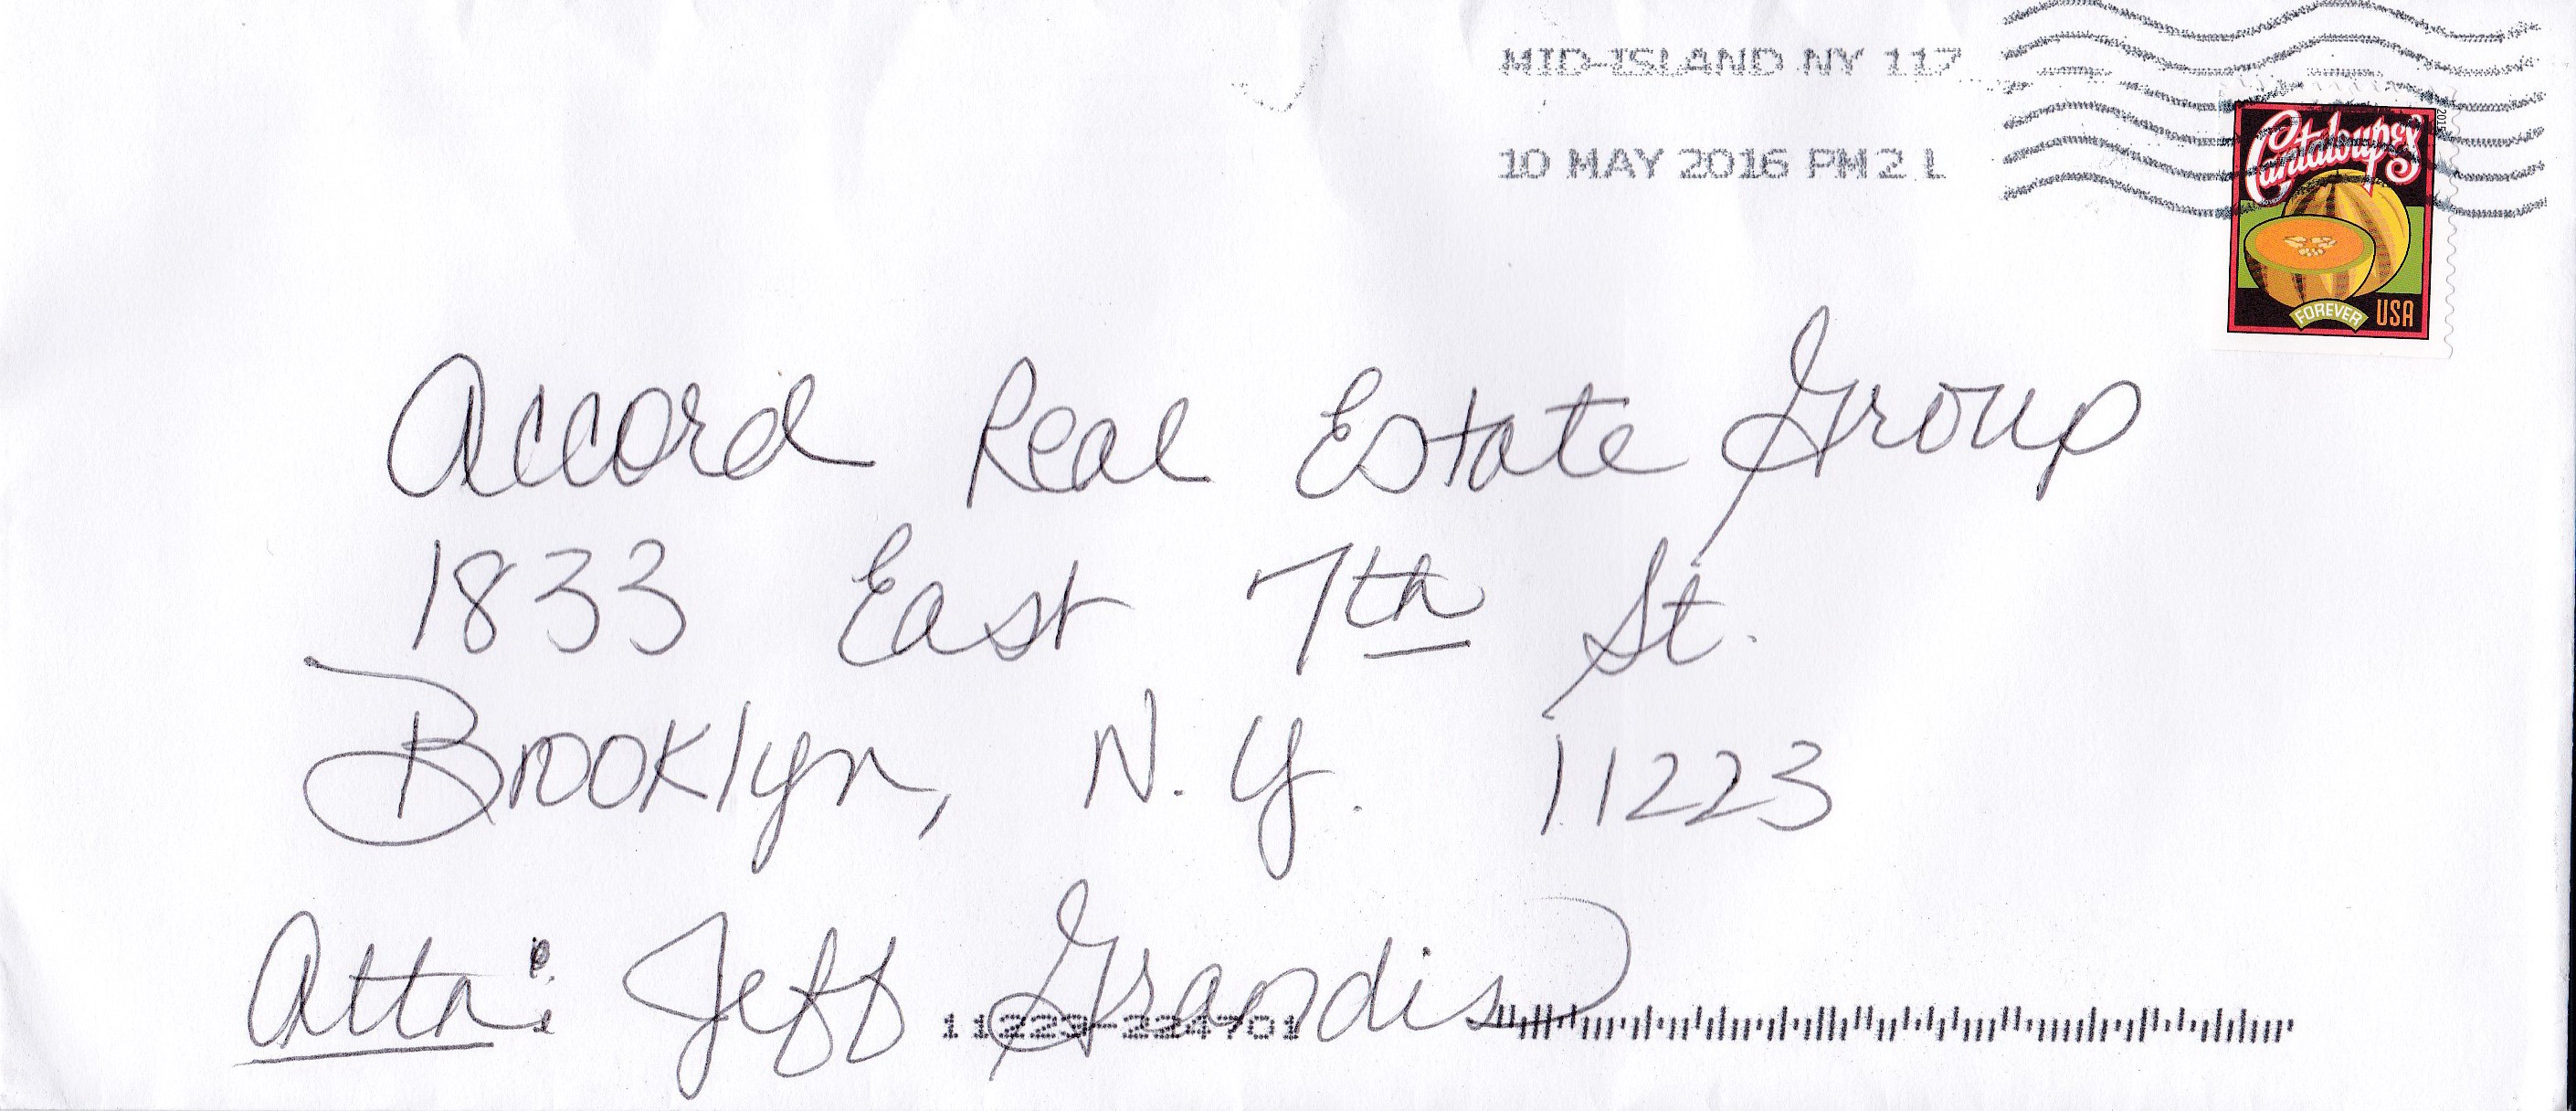 MID-ISLAND NY 117
10 MAY 2016 PM 2 L
Cantaloupes
FOREVER USA
Accord Real Estate Group
1833 East 7th St.
Brooklyn, N.Y. 11223
Attn: Jeff Grandis
11223-224701